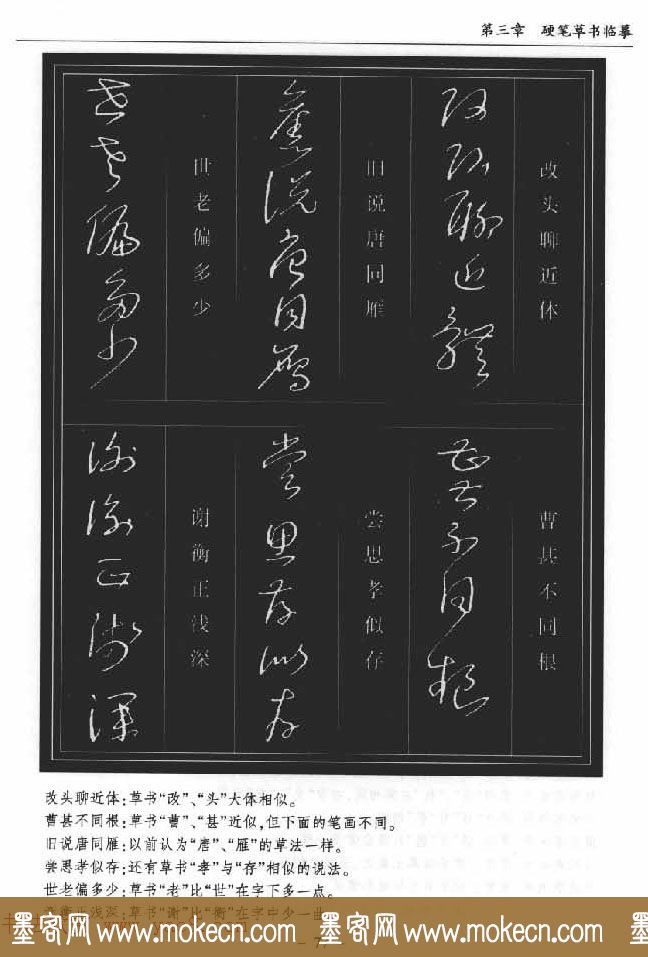 第三章 硬笔草书临摹
改头聊近体
曹甚不同根
旧说唐同雁
尝思孝似存
世老偏多少
谢衡正浅深
改头聊近体:草书“改”、“头”大体相似。
曹甚不同根:草书“曹”、“甚”近似,但下面的笔画不同。
旧说唐同雁:以前认为“唐”、“雁”的草法一样。
尝思孝似存:还有草书“孝”与“存”相似的说法。
世老偏多少:草书“老”比“世”在字下多一点。
浅深:草书“谢”比“衡”在字中少一曲
墨客网 www.mokecn.com 墨客网 www.mokecn.com 墨客网